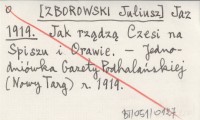 [ZBOROWSKI Juliusz] Jaz
1919. Jak rządzą Czesi na
Spiszu i Orawie. – Jedno-
dniówka Gazety Podhalańskiej
(Nowy Targ) r. 1919.